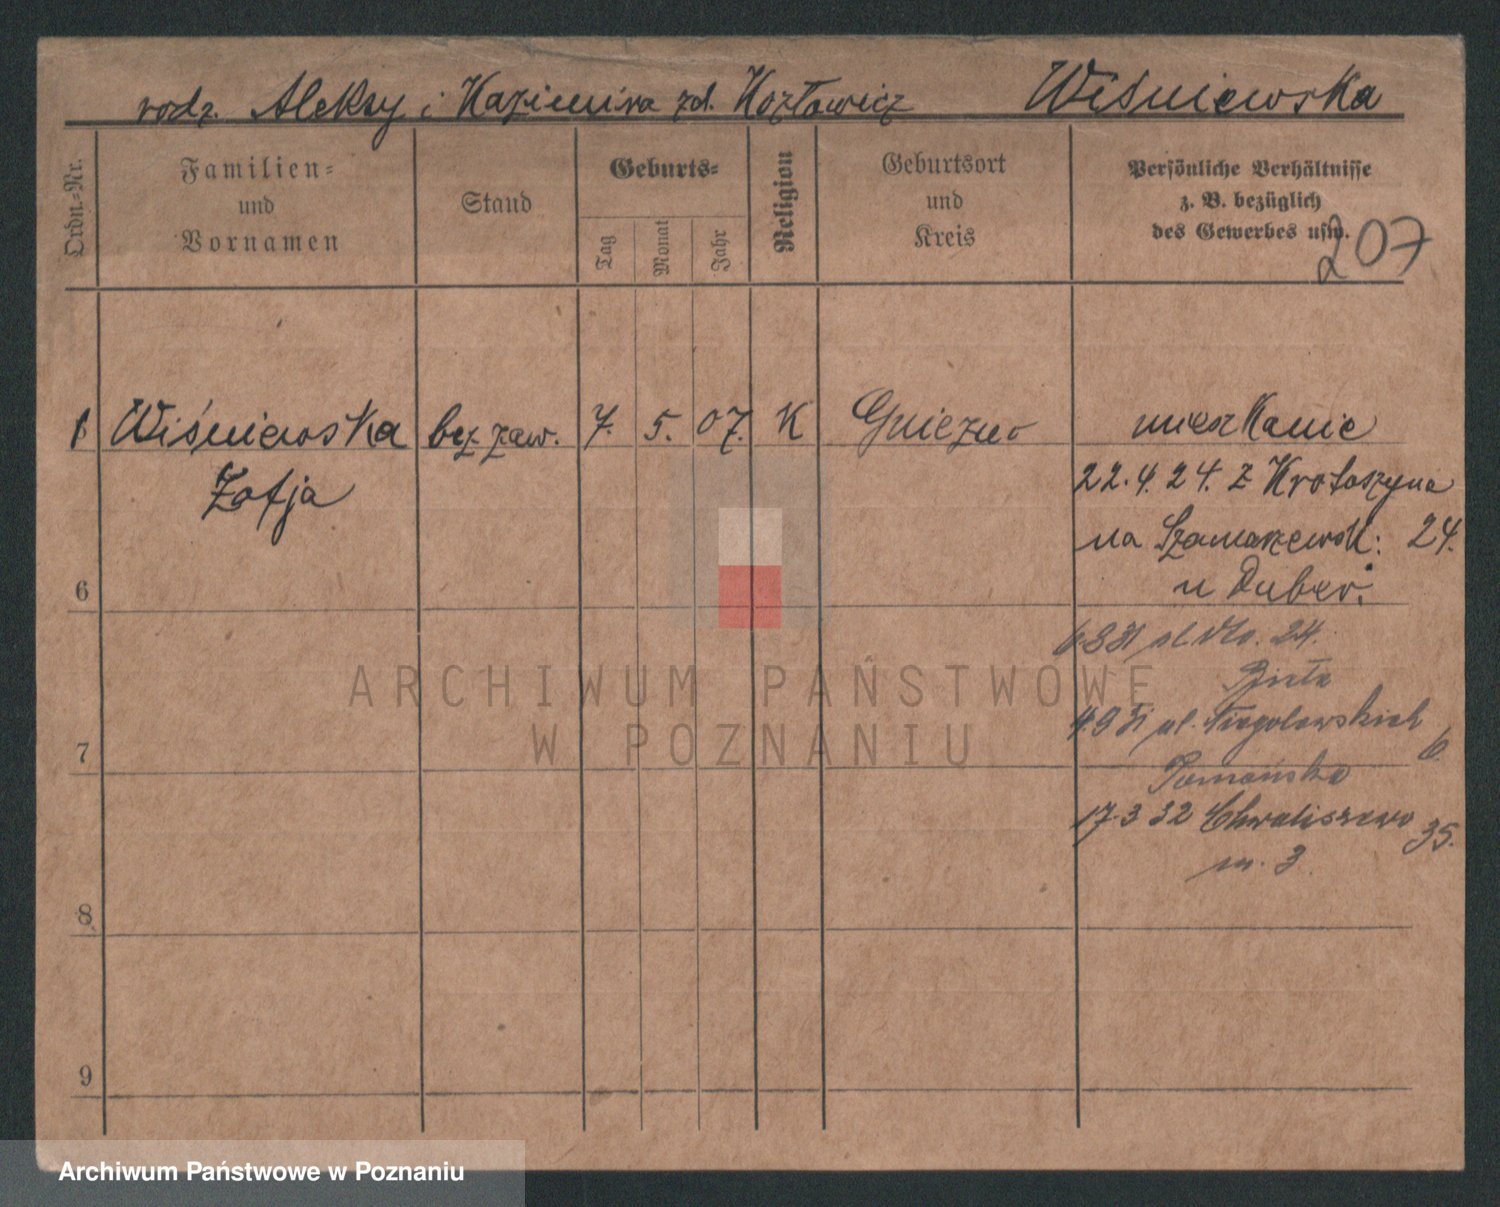 rodz. Aleksy i Kazimira zd. Kozłowicz Wiśniewska
Ordn.-Nr.
Familien-
und
Vornamen
Stand
Geburts-
Tag
Monat
Jahr
Religion
Geburtsort
und
Kreis
Persönliche Verhältnisse
z. B. bezüglich
des Gewerbes usw.
207
1 Wiśniewska bez zaw. 7. 5. 07. K Gniezno mieszkanie
Zofja
22.4.24. z Krotoszyna
na Szamarzewsk: 24.
u Duber:
6
24.
ARCHIWUM PAŃSTWOWE
W POZNANIU
ul.
6.
7
17.3 32 Chwaliszewo 35.
m. 3.
8
9
Archiwum Państwowe w Poznaniu